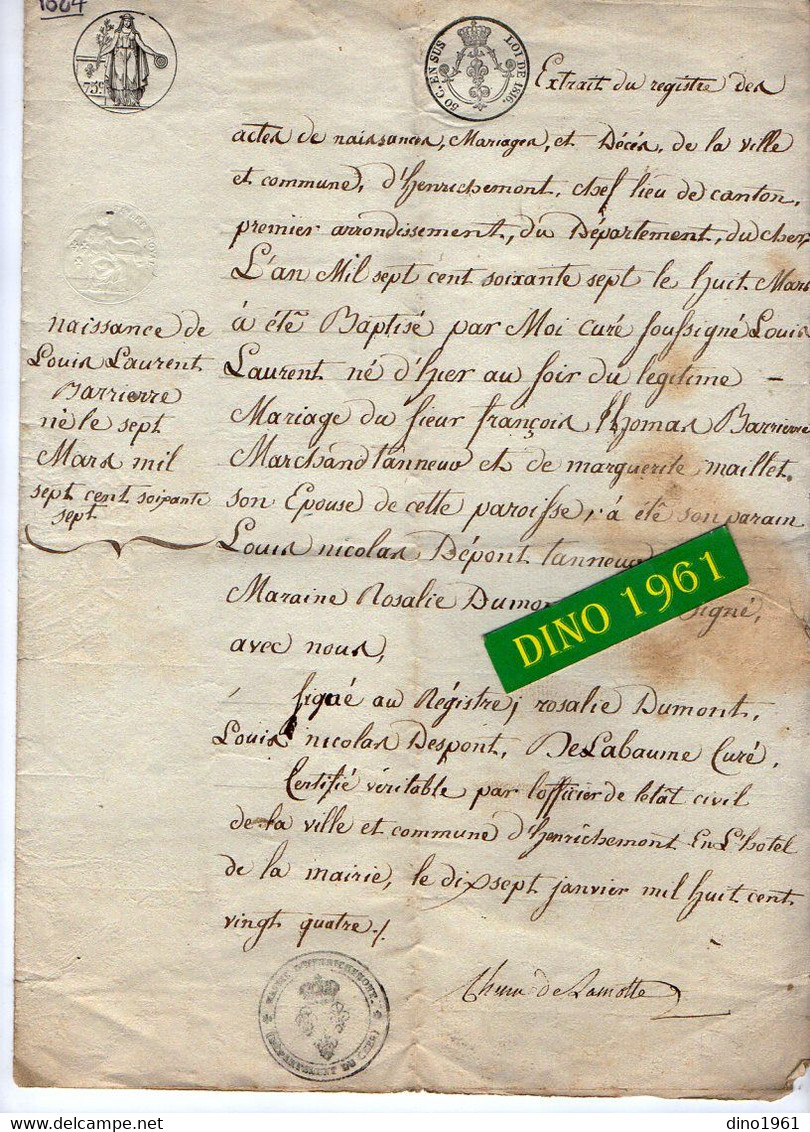 1824
75c
50 C. EN SUS LOI DE 1816.
Extrait du registre des
actes de naissances, Mariages, et Décés, de la ville
et commune, d'henrichemont, chef lieu de canton,
premier arrondissement, du Département, du cher,
L'an Mil sept cent soixante sept le huit Mars
á été Baptisé par Moi curé soussigné Louis
Laurent né d'hier au soir du legitime –
Mariage du sieur françois Thomas Barrierre
Marchand tanneur et de marguerite maillet.
son Epouse de cette paroisse, á été son parain
Louis nicolas Dépont tanneur
Maraine Rosalie Dumon signé,
avec nous,
signé au Régistre; rosalie Dumont,
Louis nicolas Despont, De Labaume Curé,
Certifié véritable par l'officier de létat civil
de la ville et commune d'henrichemont En L'hotel
de la mairie, le dix sept janvier mil huit cent
vingt quatre ./.
naissance de
Louis Laurent
Barrierre
né le sept
Mars mil
sept cent soixante
sept
DINO 1961
MAIRIE D'HENRICHEMONT
(DÉPARTEMENT DU CHER)
de Lamotte
dino1961